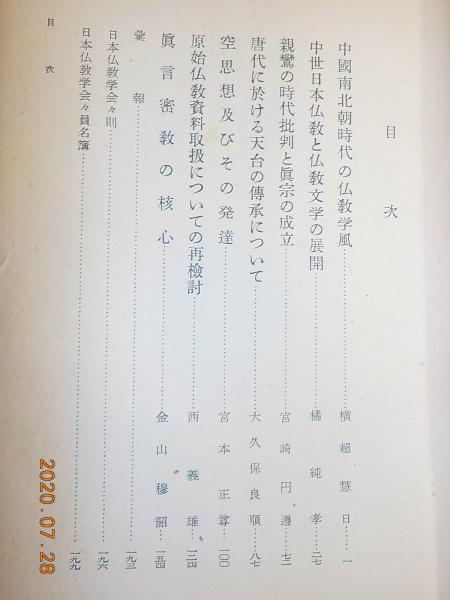 目次
中國南北朝時代の仏教学風……横超慧日…一
中世日本仏教と仏教文学の展開……橘純孝…二七
親鸞の時代批判と眞宗の成立……宮崎円遵…七二
唐代に於ける天台の傳承について……大久保良順…八七
空思想及びその発達……宮本正尊…一〇〇
原始仏教資料取扱についての再檢討……西義雄…一二四
眞言密教の核心……金山穆韶…一五四
彙報……一九三
日本仏教学会々則……一九六
日本仏教学会々員名簿……一九九
目次
2020.07.28